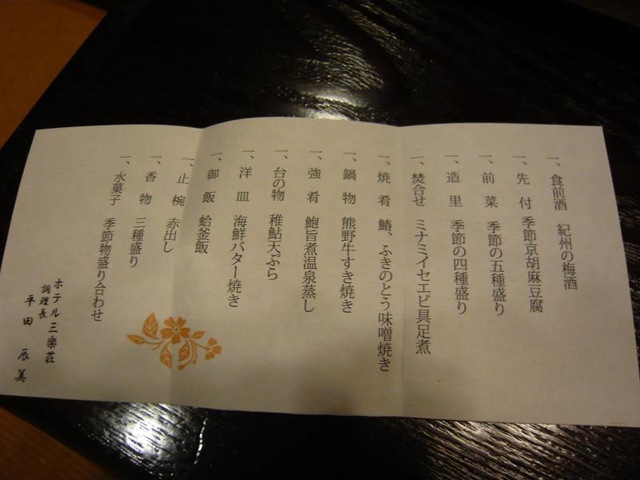 一、食前酒　紀州の梅酒
一、先　付　季節京胡麻豆腐
一、前　菜　季節の五種盛り
一、造　里　季節の四種盛り
一、焚合せ　ミナミイセエビ具足煮
一、焼　肴　鰆、ふきのとう味噌焼き
一、鍋　物　熊野牛すき焼き
一、強　肴　鮑旨煮温泉蒸し
一、台の物　稚鮎天ぷら
一、洋　皿　海鮮バター焼き
一、御　飯　蛤釜飯
一、止　椀　赤出し
一、香　物　三種盛り
一、水菓子　季節物盛り合わせ
ホテル三楽荘
調理長
平田　辰美